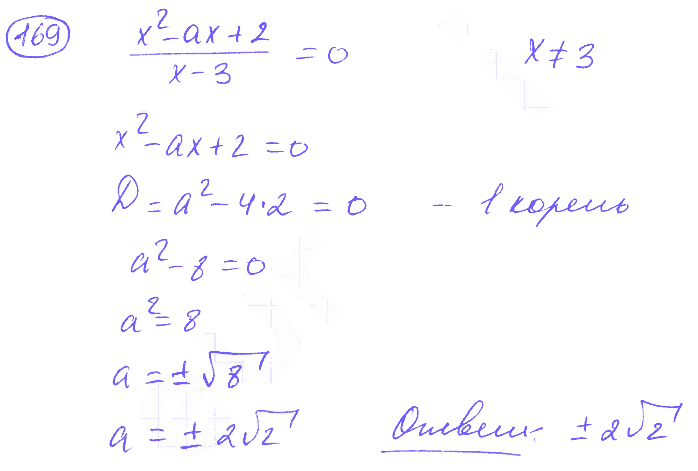 169 (x² - ax + 2)/(x - 3) = 0 x ≠ 3
x² - ax + 2 = 0
D = a² - 4·2 = 0 – 1 корень
a² - 8 = 0
a² = 8
a = ±√8
a = ±2√2 Ответ: ±2√2